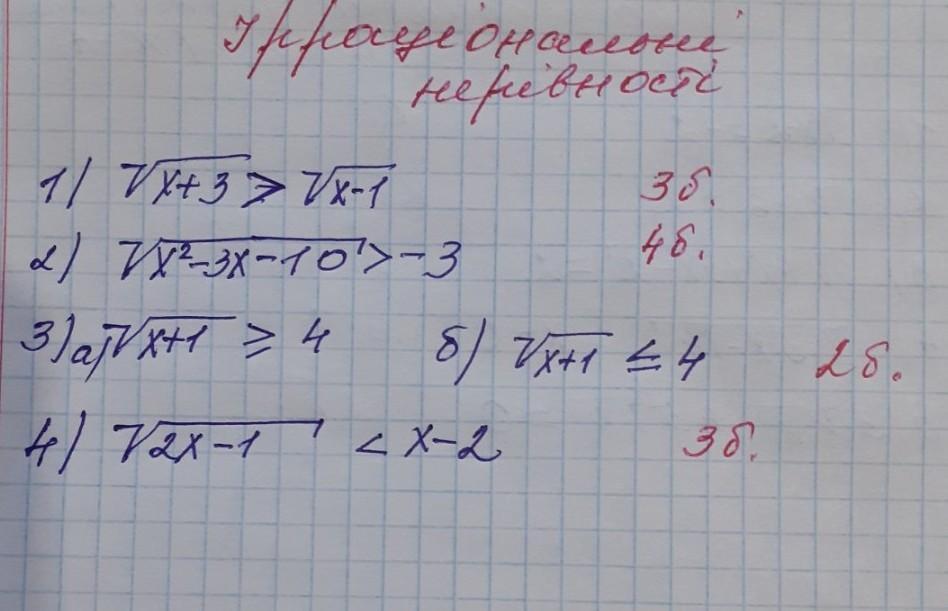 Ірраціональні
нерівності
1) √x+3 > √x-1 3б.
2) √x²-3x-10 > -3 4б.
3) а) √x+1 ≥ 4 б) √x+1 ≤ 4 2б.
4) √2x-1 < x-2 3б.